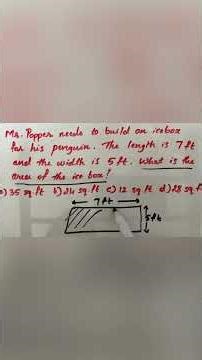 Mr. Popper needs to build an icebox
for his penguin. The length is 7ft
and the width is 5ft. What is the
area of the ice box?
a) 35 sq.ft b) 24 sq.ft c) 12 sq.ft d) 28 sq.f
7ft
5ft